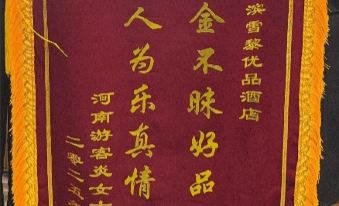 滨雪黎优品酒店
金不昧好品
人为乐真情
河南游客炎女士
二零二五